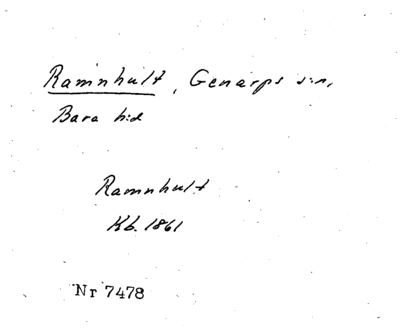 Ramnhult, Genarps s:n,
Bara h:d
Ramnhult
Kb. 1861
Nr 7478